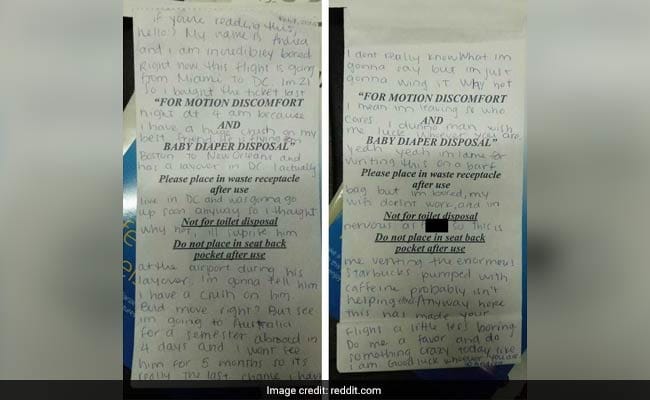 if you're reading this,
hello! My name is Andrea
and I am incredibley bored
Right now this flight is going
from Miami to DC. Im 21
so I bought the ticket last
"FOR MOTION DISCOMFORT
night at 4 am because
AND
I have a huge crush on my
BABY DIAPER DISPOSAL"
best friend. He is flying from
Boston to New Orleans and
has a layover in DC. I actually
Please place in waste receptacle
after use
live in DC and was gonna go
up soon anyway so I thought
Not for toilet disposal
why not, ill suprise him
Do not place in seat back
pocket after use
at the airport during his
layover. im gonna tell him
I have a crush on him.
Bold move right? But see
im going to Australia
for a semester abroad in
4 days and I wont see
him for 5 months so its
really the last chance I have
I dont really know what im
gonna say but im just
gonna wing it. Why not
"FOR MOTION DISCOMFORT
I mean im leaving so who
cares. I dunno man wish
AND
me luck whoever you are
BABY DIAPER DISPOSAL"
yeah yeah im lame for
writing this on a barf
Please place in waste receptacle
after use
bag but im bored, my
wifi doesnt work, and im
Not for toilet disposal
nervous as so this is
Do not place in seat back
pocket after use
me venting the enormous
Starbucks pumped with
caffeine probably isn't
helping too. Anyway hope
this has made your
flight a little less boring
Do me a favor and do
something crazy today like
I am. Good luck whoever you are
Image credit: reddit.com